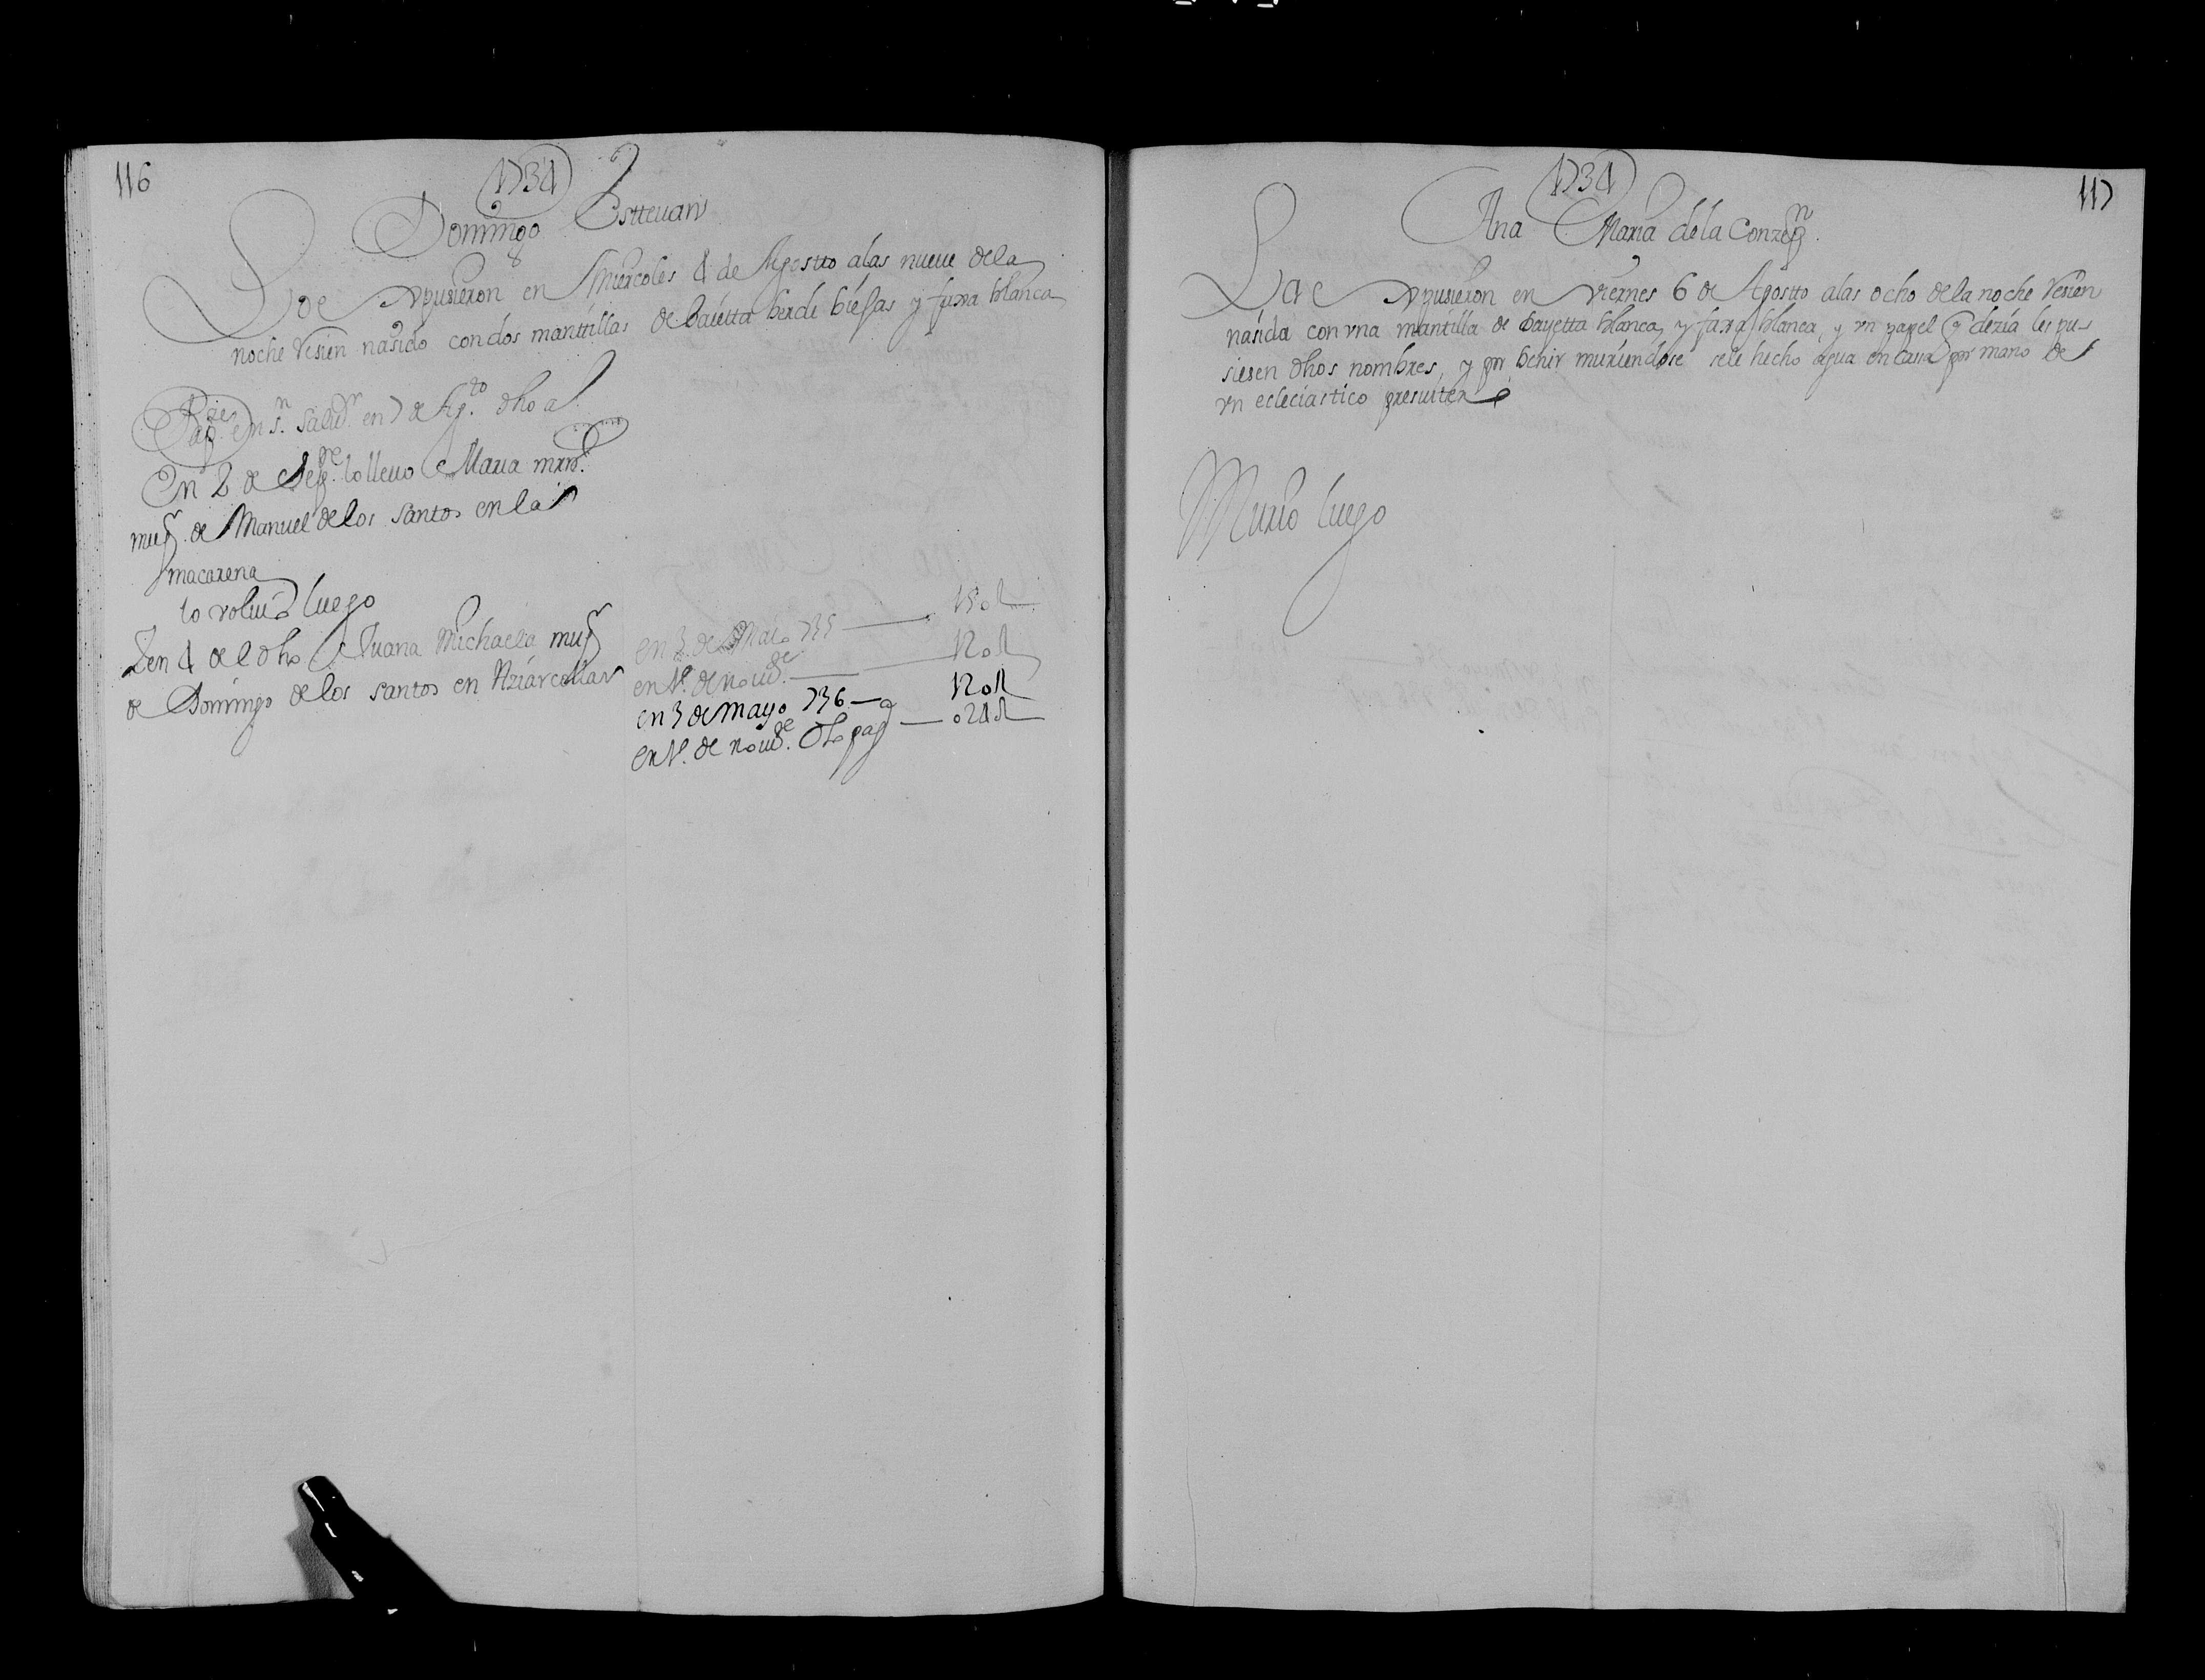 116
1734
Domingo Estteuan
Se expusieron en Miercoles 4 de Agostto alas nueue dela
noche resien nasido con dos manttillas de baietta berde biejas y faxa blanca
Bap.e en S.n Saluor en 7 de Ag.to dho a
en 2 de Sep.re lo lleuo Maria mrn.
mug.r de Manuel delos santos en la
macarena
lo voluio luego
Y en 4 del dho Juana Michaela mug.r
de Domingo de los santos en Aznarcollar
en 3 de Maio 735
en 1.o de nou.de
en 3 de mayo 736
en 1.o de nou.de dho pag
1734
117
Ana Maria dela Conzep.n
Se expusieron en viernes 6 de Agostto alas ocho dela noche resien
nasida con vna mantilla de bayetta blanca, y faxa blanca, y vn papel q dezia les pu-
siesen dhos nombres, y por benir muriendose se le hecho agua en casa por mano de
vn ecleciastico presuitero
Murio luego